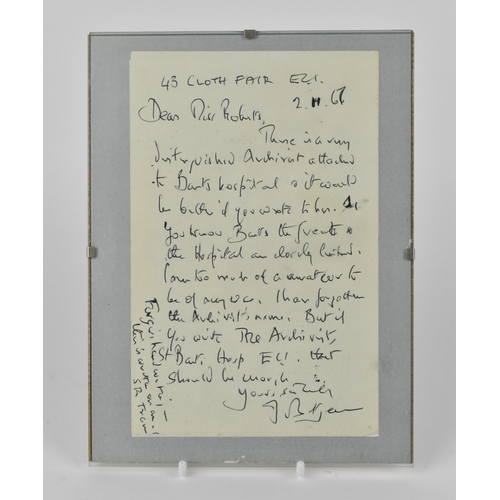 43 CLOTH FAIR EC1.
2. II. 66
Dear Miss Roberts,
There is a very
distinguished Archivist attached
to Barts hospital & it would
be better if you wrote to her.
You know Barts the Great &
the Hospital are closely linked.
I am too much of a amateur to
be of any use. I have forgotten
the Archivist's name. But if
you write The Archivist,
St Barts Hosp EC1. that
should be enough
Yours sincerely
J Betjeman
Forgive handwriting
this is written on a
S.R. Train